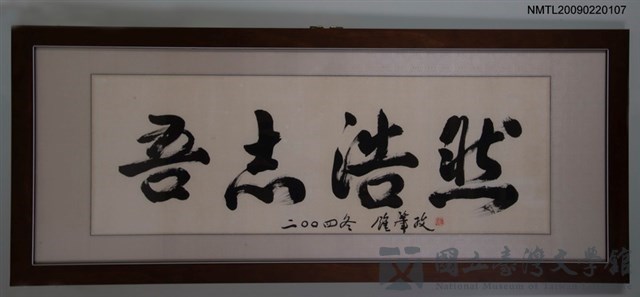 NMTL20090220107
吾志浩然
二〇〇四冬
國立臺灣文學館
National Museum of Taiwan Literature